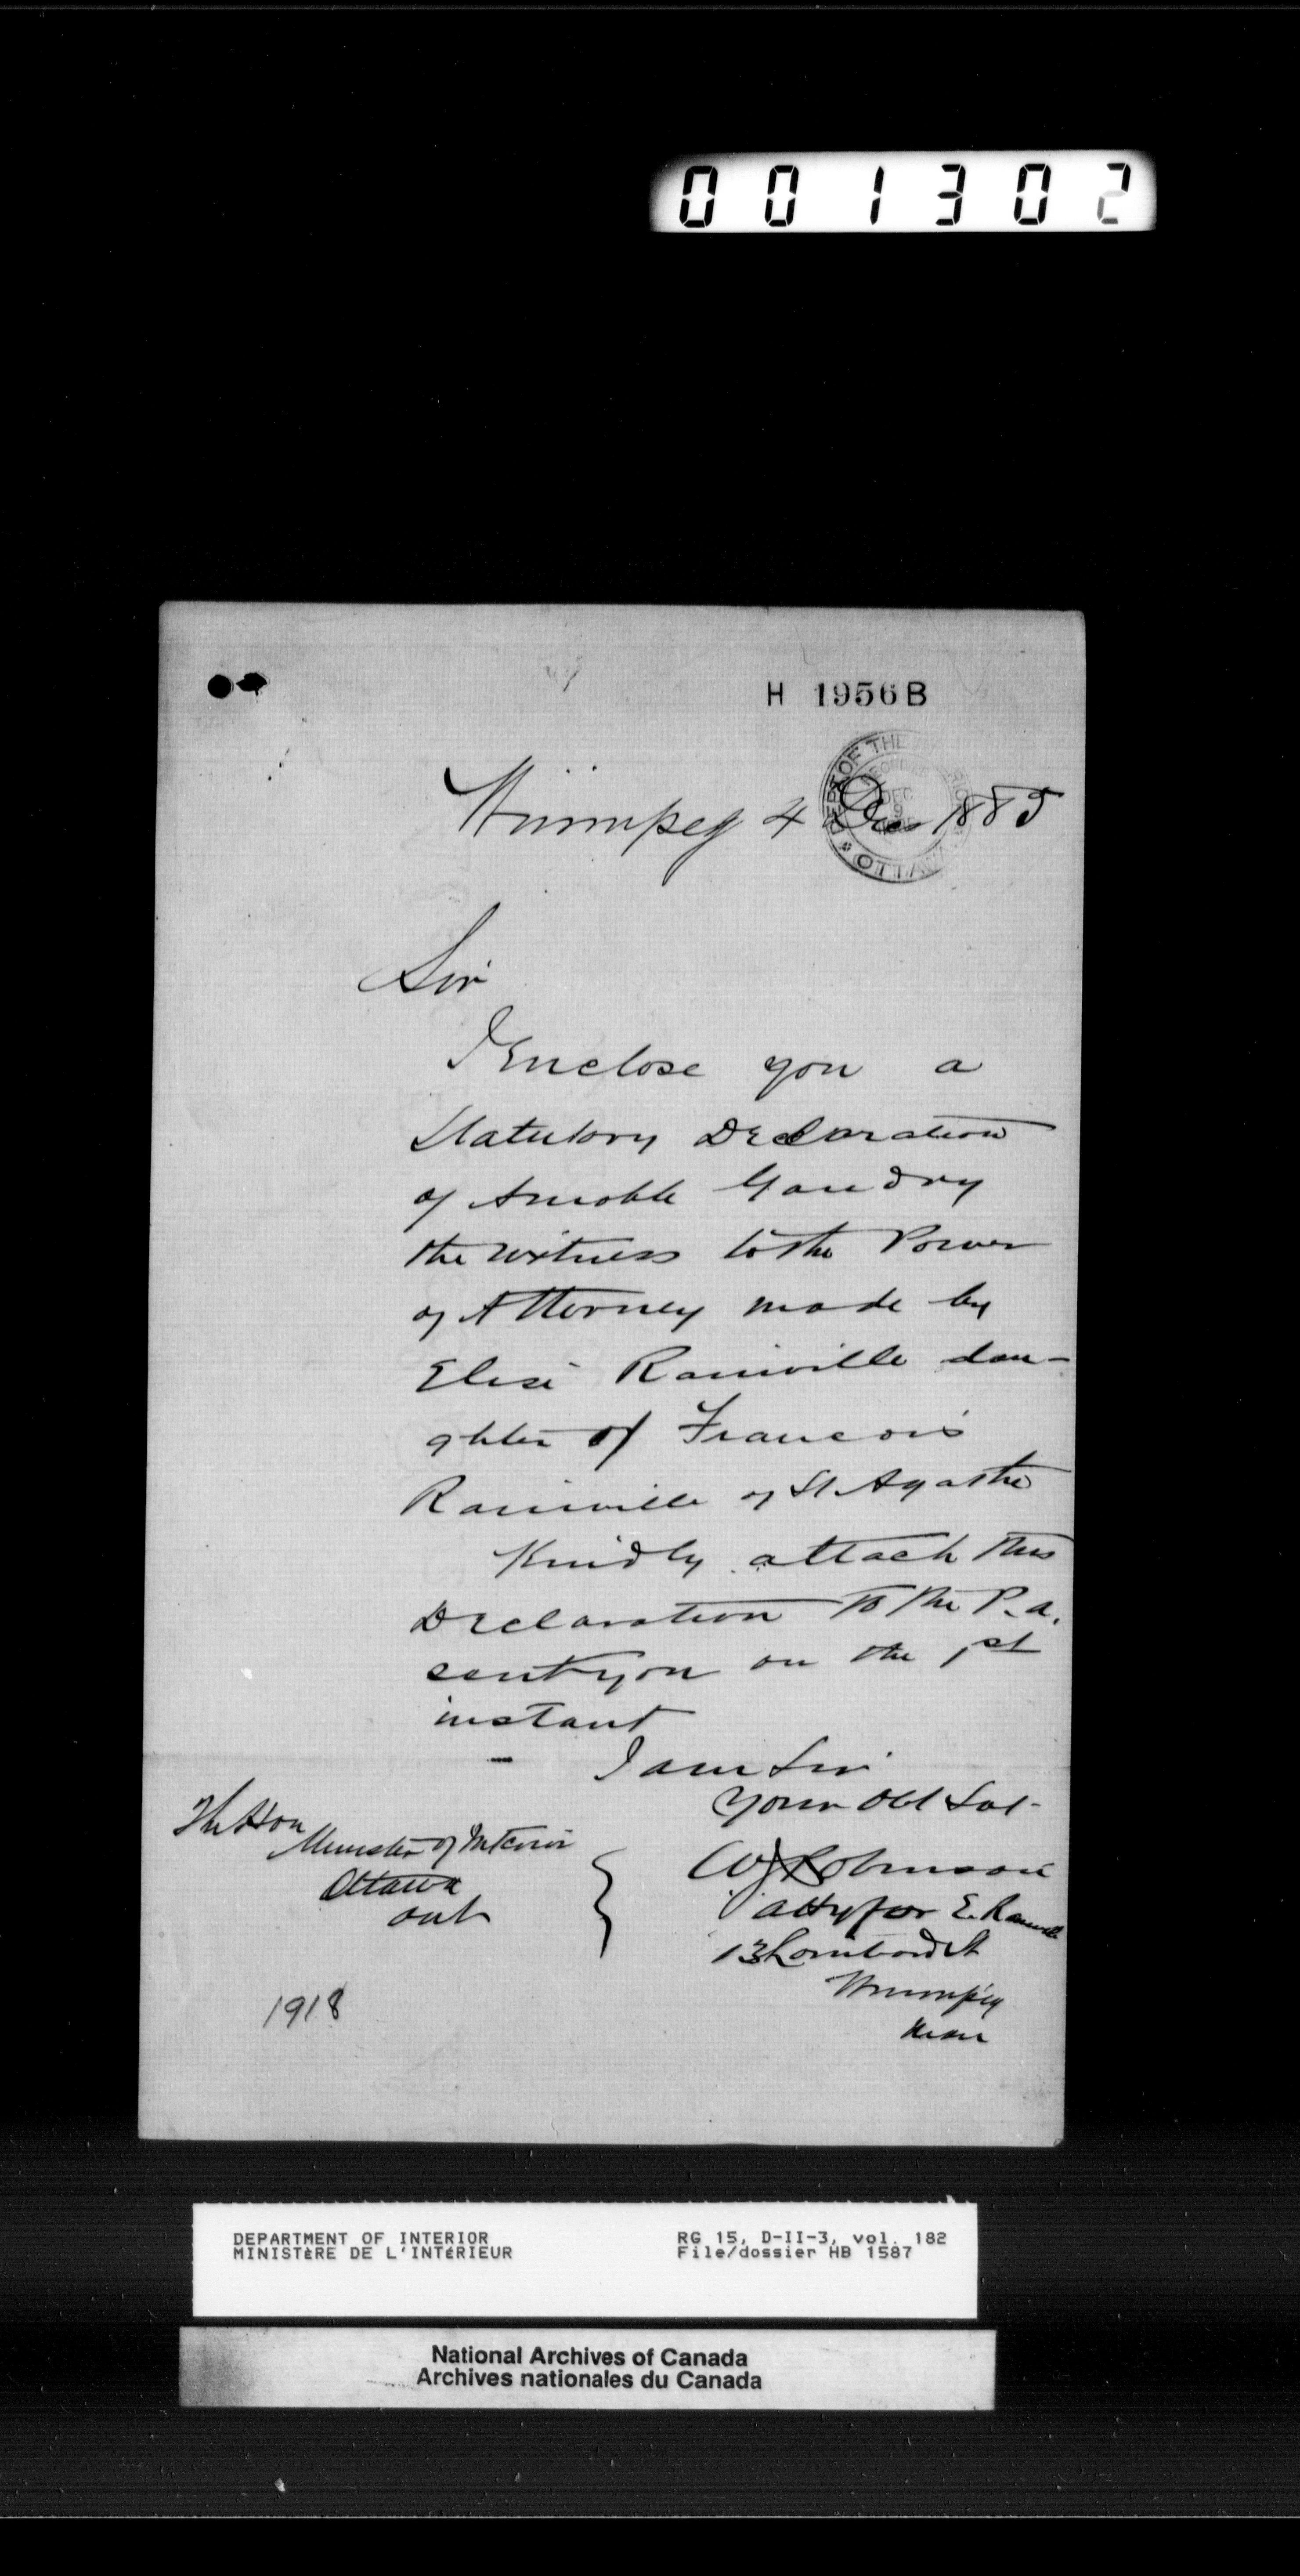 001302
H 1956B
DEPT OF THE INTERIOR
DEC
9
OTTAWA
Winnipeg 4 Dec 1885
Sir
I Enclose you a
Statutory Declaration
of Amable Gaudry
the witness to the Power
of Attorney made by
Elise Rainville dau-
ghter of Francois
Rainville of St Agathe
Kindly attach this
Declaration to the P.a.
sent you on the 1st
instant
I am Sir
Your Obt Svt
The Hon
Minister of Interior
Ottawa
ont
W Robinson
atty for E. Rainville
13 Lombard St
Winnipeg
Man
1918
DEPARTMENT OF INTERIOR
MINISTÈRE DE L'INTÉRIEUR
RG 15, D-II-3, vol. 182
File/dossier HB 1587
National Archives of Canada
Archives nationales du Canada